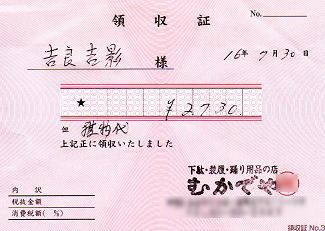 領収証
No.
吉良吉影 様
16年 7月30日
★ ¥2,730.
但 履物代
上記正に領収いたしました
下駄・草履・踊り用品の店
むかでや
内 訳
税抜金額
消費税額( %)
領収証 No.3